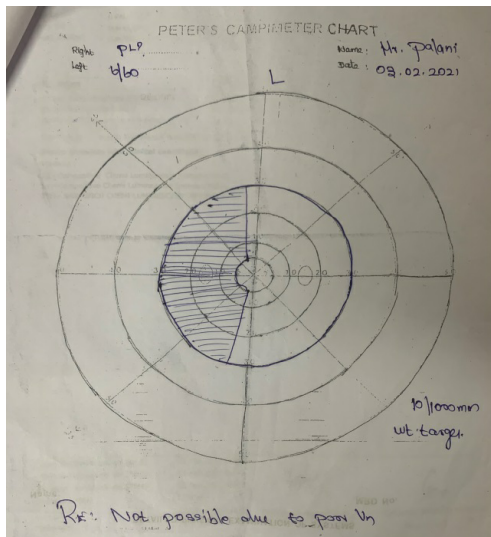 PETER'S CAMPIMETER CHART
Right PLP
Left 6/60
Name: Mr. Palani
Date: 03.02.2021
L
10/1000mm
wt. target.
Rx: Not possible due to poor Vn